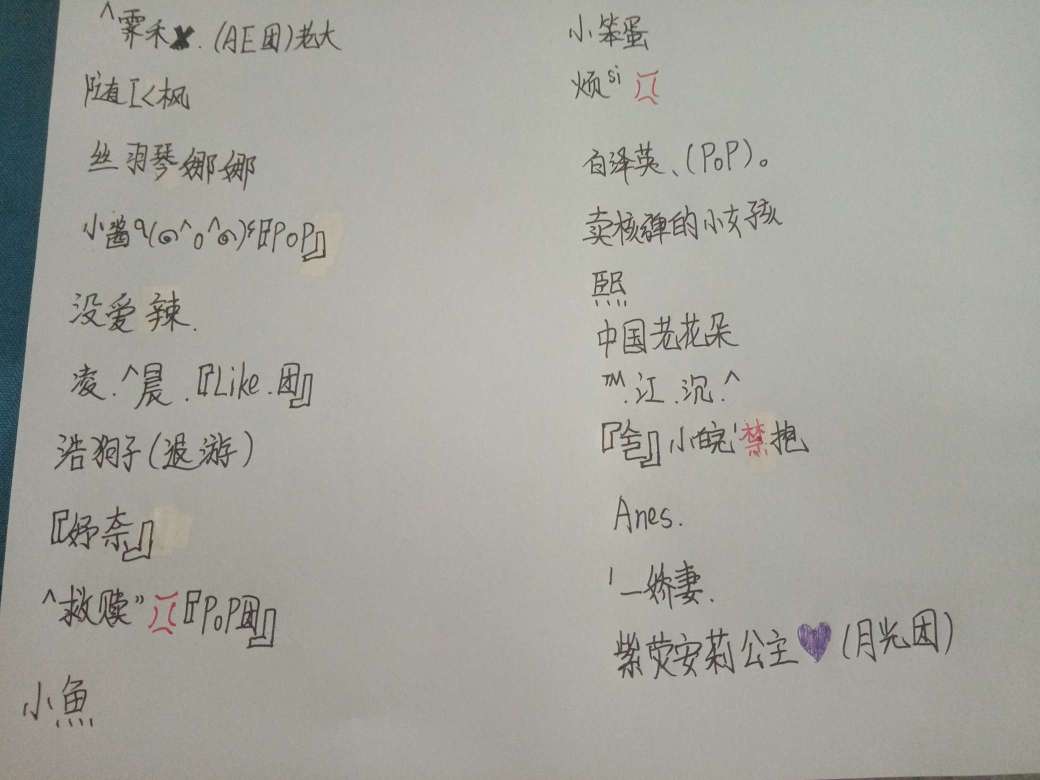 ^霂禾✘.(AE团)老大
随I<枫
丝羽琴娜娜
小酱٩(๑^o^๑)۶『PoP』
没爱辣.
凌.^晨.『Like.团』
浩狗子(退游)
『妤奈』
^救赎”💢『PoP团』
小魚
小笨蛋
烦si💢
白泽英、(PoP)。
卖核弹的小女孩
熙
中国老花朵
™.江.沉.^
『啥』小皖'禁抱
Anes.
'一娇妻.
紫荧安莉公主💜(月光团)